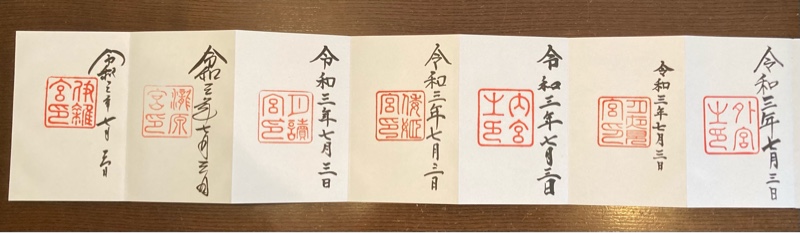 令和三年七月三日
外宮
之印
令和三年七月三日
月夜見
宮印
令和三年七月三日
内宮
之印
令和三年七月三日
倭姫
宮印
令和三年七月三日
月讀
宮印
令和三年七月三日
瀧原
宮印
令和三年七月三日
伊雜
宮印